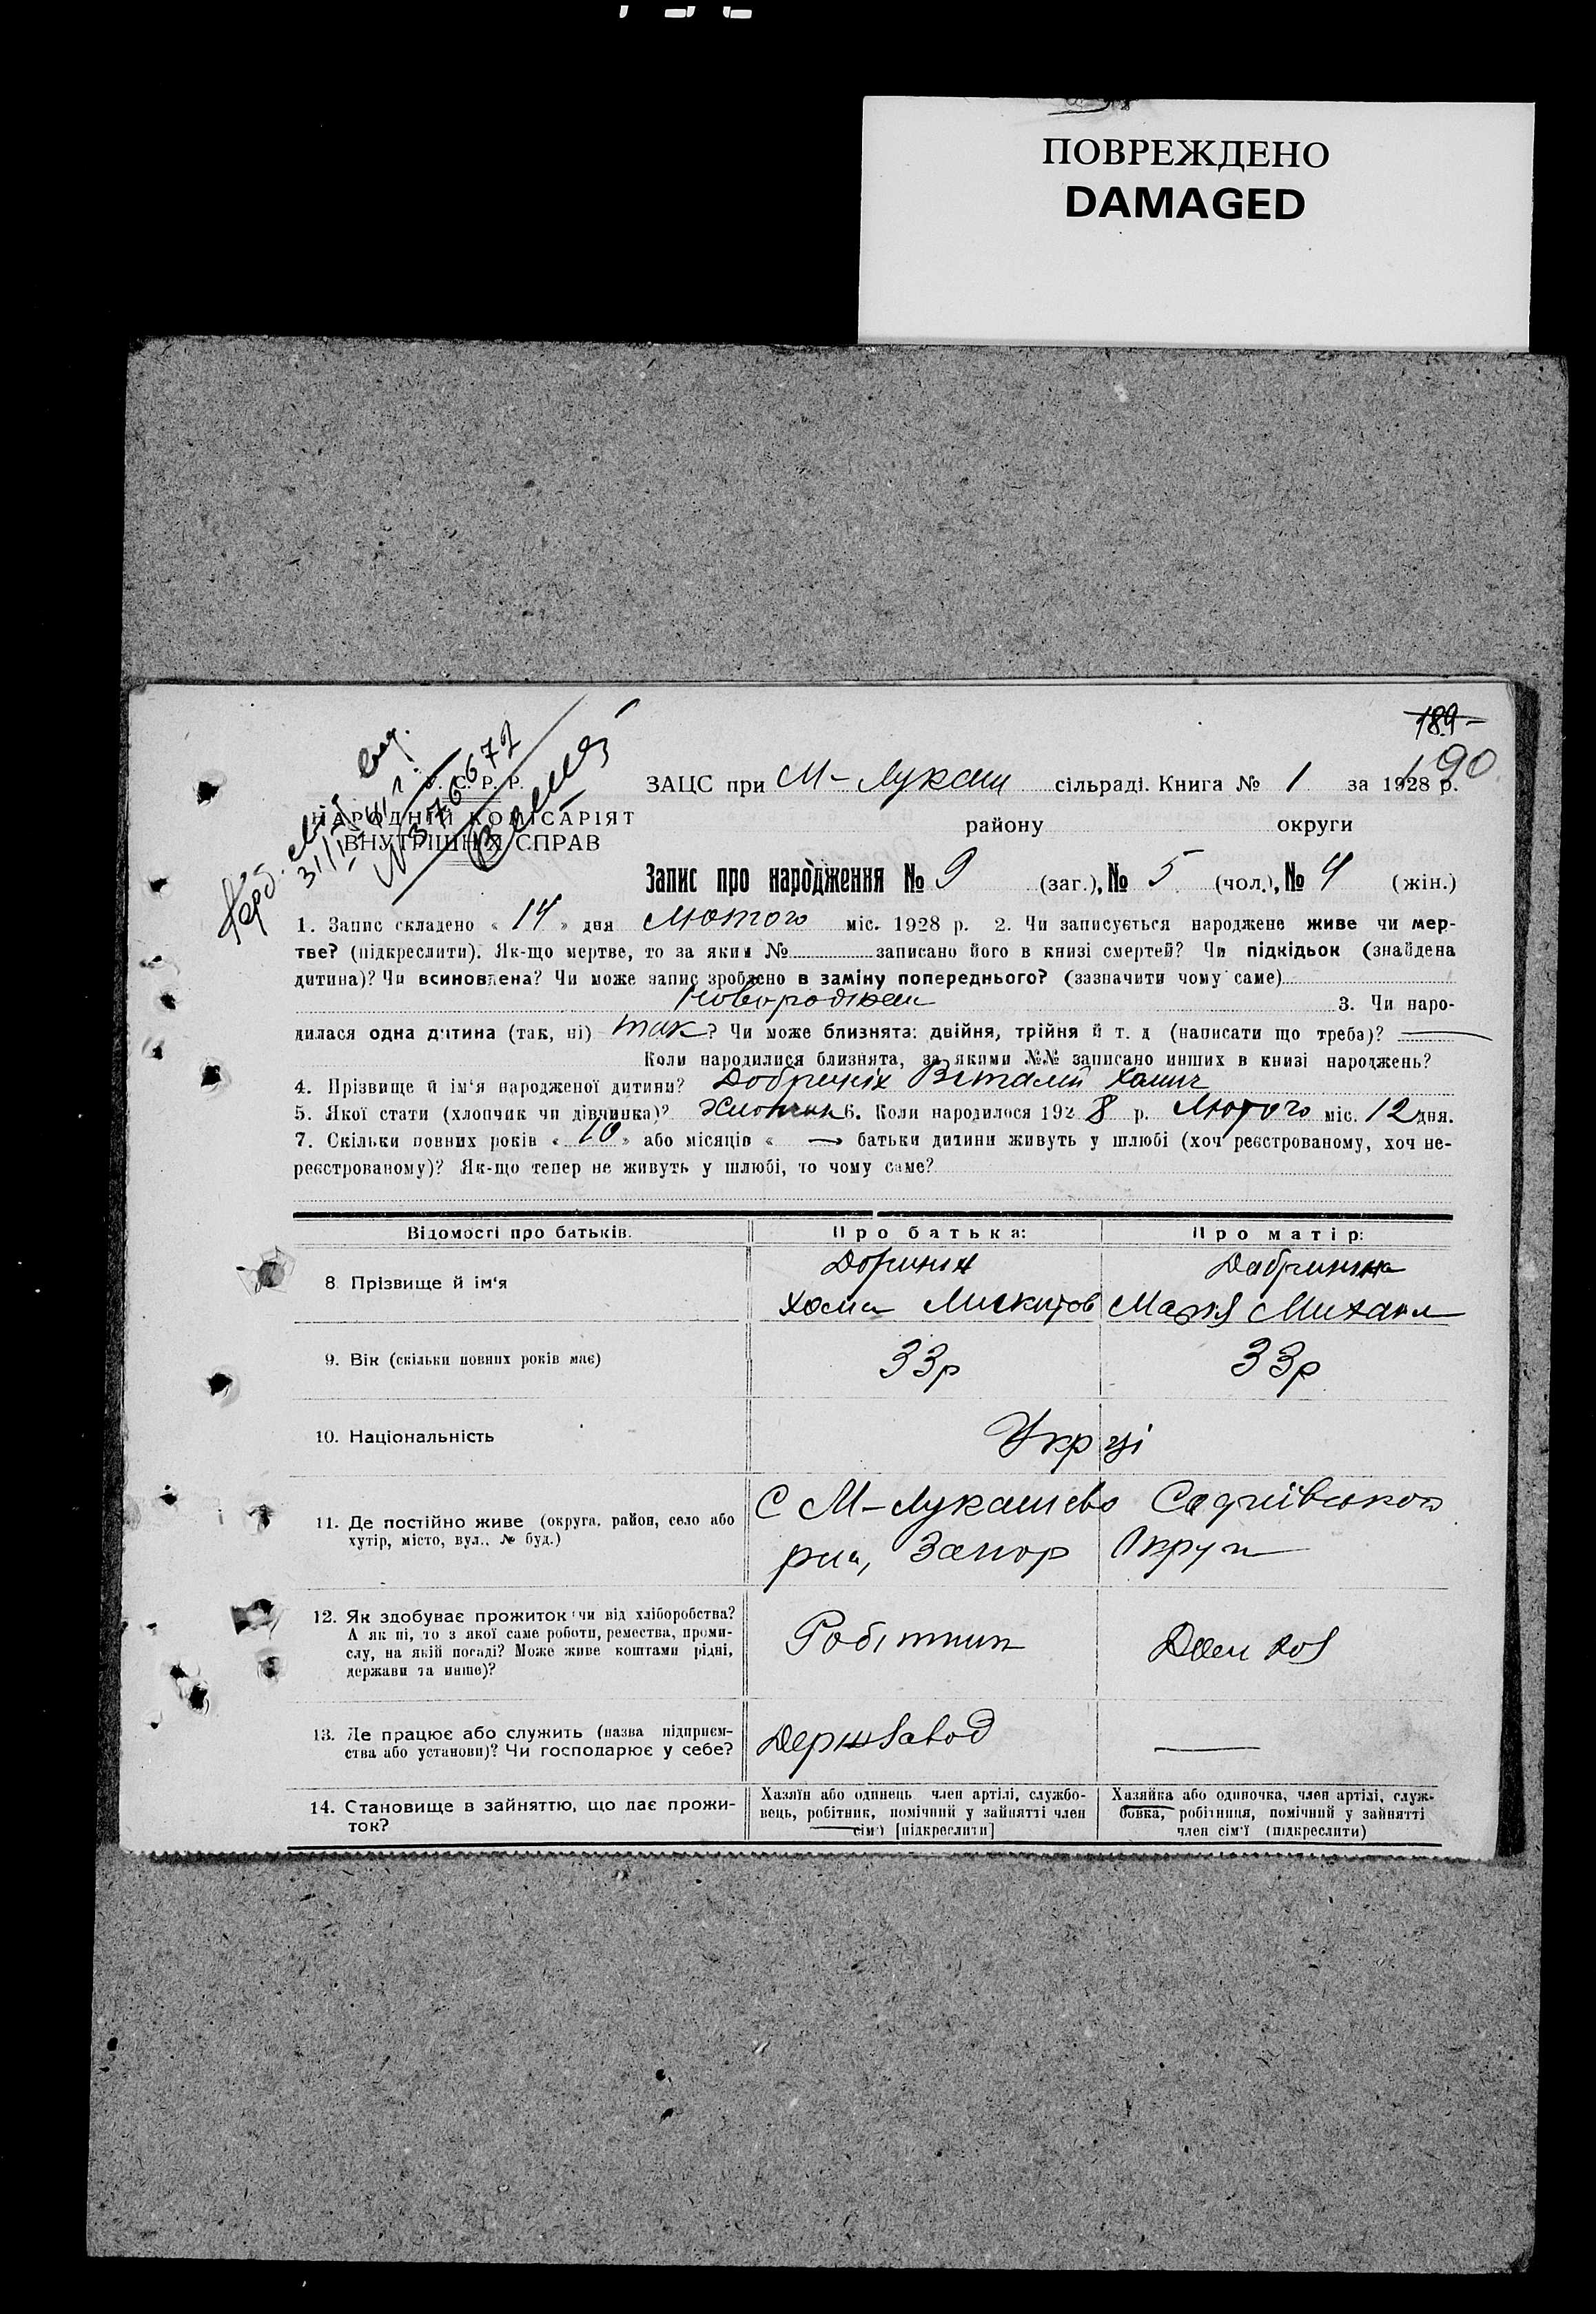 ПОВРЕЖДЕНО
DAMAGED
189
190
С. Р. Р.
НАРОДНІЙ КОМІСАРІЯТ
ВНУТРІШНІХ СПРАВ
№ 376672
ЗАЦС при М-Лукаш сільраді. Книга № 1 за 1928 р.
району округи
Запис про народження № 9 (заг.), № 5 (чол.), № 4 (жін.)
1. Запис складено « 14 » дня Лютого міс. 1928 р. 2. Чи записується народжене живе чи мер-
тве? (підкреслити). Як-що мертве, то за яким № записано його в книзі смертей? Чи підкідьок (знайдена
дитина)? Чи всиновлена? Чи може запис зроблено в заміну попереднього? (зазначити чому саме)
3. Чи наро-
дилася одна дитина (так, ні) так? Чи може близнята: двійня, трійня й т. д (написати що треба)?
Коли народилися близнята, за якими №№ записано инших в книзі народжень?
4. Прізвище й ім'я народженої дитини? Добриніх Віталій Хомич
5. Якої стати (хлопчик чи дівчинка)? Хлопчик 6. Коли народилося 1928 р. Лютого міс. 12 дня.
7. Скільки повних років « 10 » або місяців « — » батьки дитини живуть у шлюбі (хоч реєстрованому, хоч не-
реєстрованому)? Як-що тепер не живуть у шлюбі, то чому саме?
Відомості про батьків. Про батька: Про матір:
8. Прізвище й ім'я
Хома Микитов Марія Михайл
9. Вік (скільки повних років має) 33р 33р
10. Національність Укр ці
11. Де постійно живе (округа, район, село або
хутір, місто, вул., № буд.)
С М-Лукашево
Запор Округи
12. Як здобуває прожиток чи від хліборобства?
А як ні, то з якої саме роботи, ремества, проми-
слу, на якій посаді? Може живе коштами рідні,
держави та инше)?
Робітник Дом хоз
13. Де працює або служить (назва підприєм-
ства або установи)? Чи господарює у себе?
Держзавод —
14. Становище в зайняттю, що дає прожи-
ток?
Хазяїн або одинець член артілі, службо-
вець, робітник, помічний у зайнятті член
сім'ї [підкреслити]
Хазяйка або одиночка, член артілі, служ-
бовка, робітниця, помічний у зайнятті
член сім'ї (підкреслити)